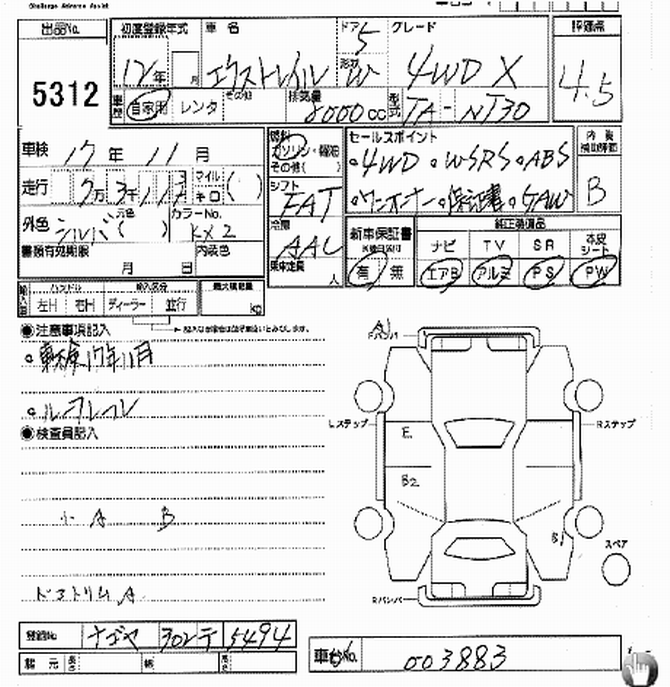 Challenge Advance Assist
出品No. 初度登録年式 車名 ドア グレード 評価点
5312
12年 月 エクストレイル 5 形状 W 4WD X 4.5
車歴 自家用 レンタ その他 排気量 2000cc 型式 TA-NT30
車検 17年 11月 燃料 ガソリン・軽油 その他( ) セールスポイント 内装補助評価
・4WD ・W-SRS ・ABS
走行 7万3千11 マイル キロ ( ) シフト FAT ・ワンオーナー ・保証書 B
外色 シルバ 元色( ) カラーNo. KX2 冷房 AAC 新車保証書 純正装備品
ナビ TV SR 本皮シート
書類有効期限 月 日 内装色 乗車定員 人 有 無 エアB アルミ PS PW
輸入車 ハンドル 輸入区分 最大積載量
左H 右H ディーラー 並行 kg
◉注意事項記入
・車検17年11月
・ルーフレール
◉検査員記入
小 A B
Fバンパ
A1
Lステップ Rステップ
E
B2
スペア
Rバンパ
登録No ナゴヤ 302 テ 5494
車台No. 003883
諸元 長さ 幅 高さ